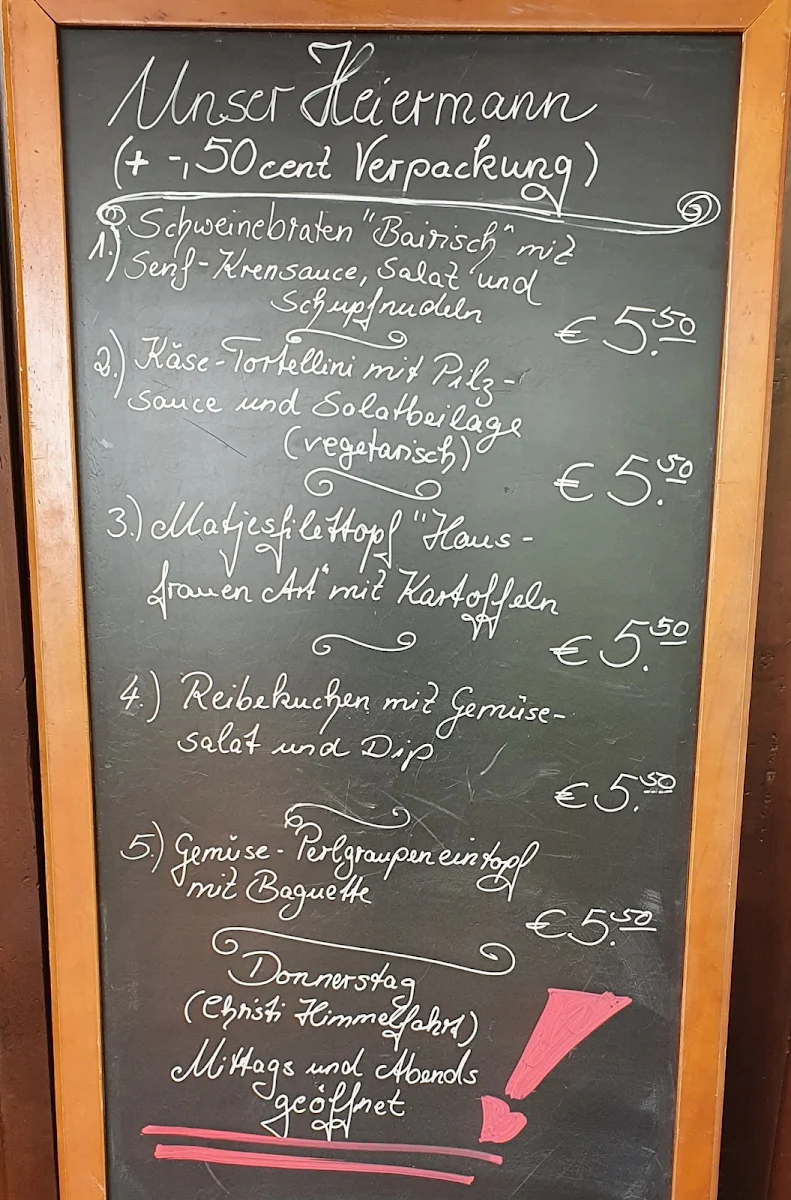 Unser Heiermann
(+ -,50 cent Verpackung)
1.) Schweinebraten "Bairisch" mit
Senf-Krensauce, Salat und
Schupfnudeln
€ 5.50
2.) Käse-Tortellini mit Pilz-
sauce und Salatbeilage
(vegetarisch)
€ 5.50
3.) Matjesfilettopf "Haus-
frauen Art" mit Kartoffeln
€ 5.50
4.) Reibekuchen mit Gemüse-
salat und Dip
€ 5.50
5.) Gemüse-Perlgraupeneintopf
mit Baguette
€ 5.50
Donnerstag
(Christi Himmelfahrt)
Mittags und Abends
geöffnet !